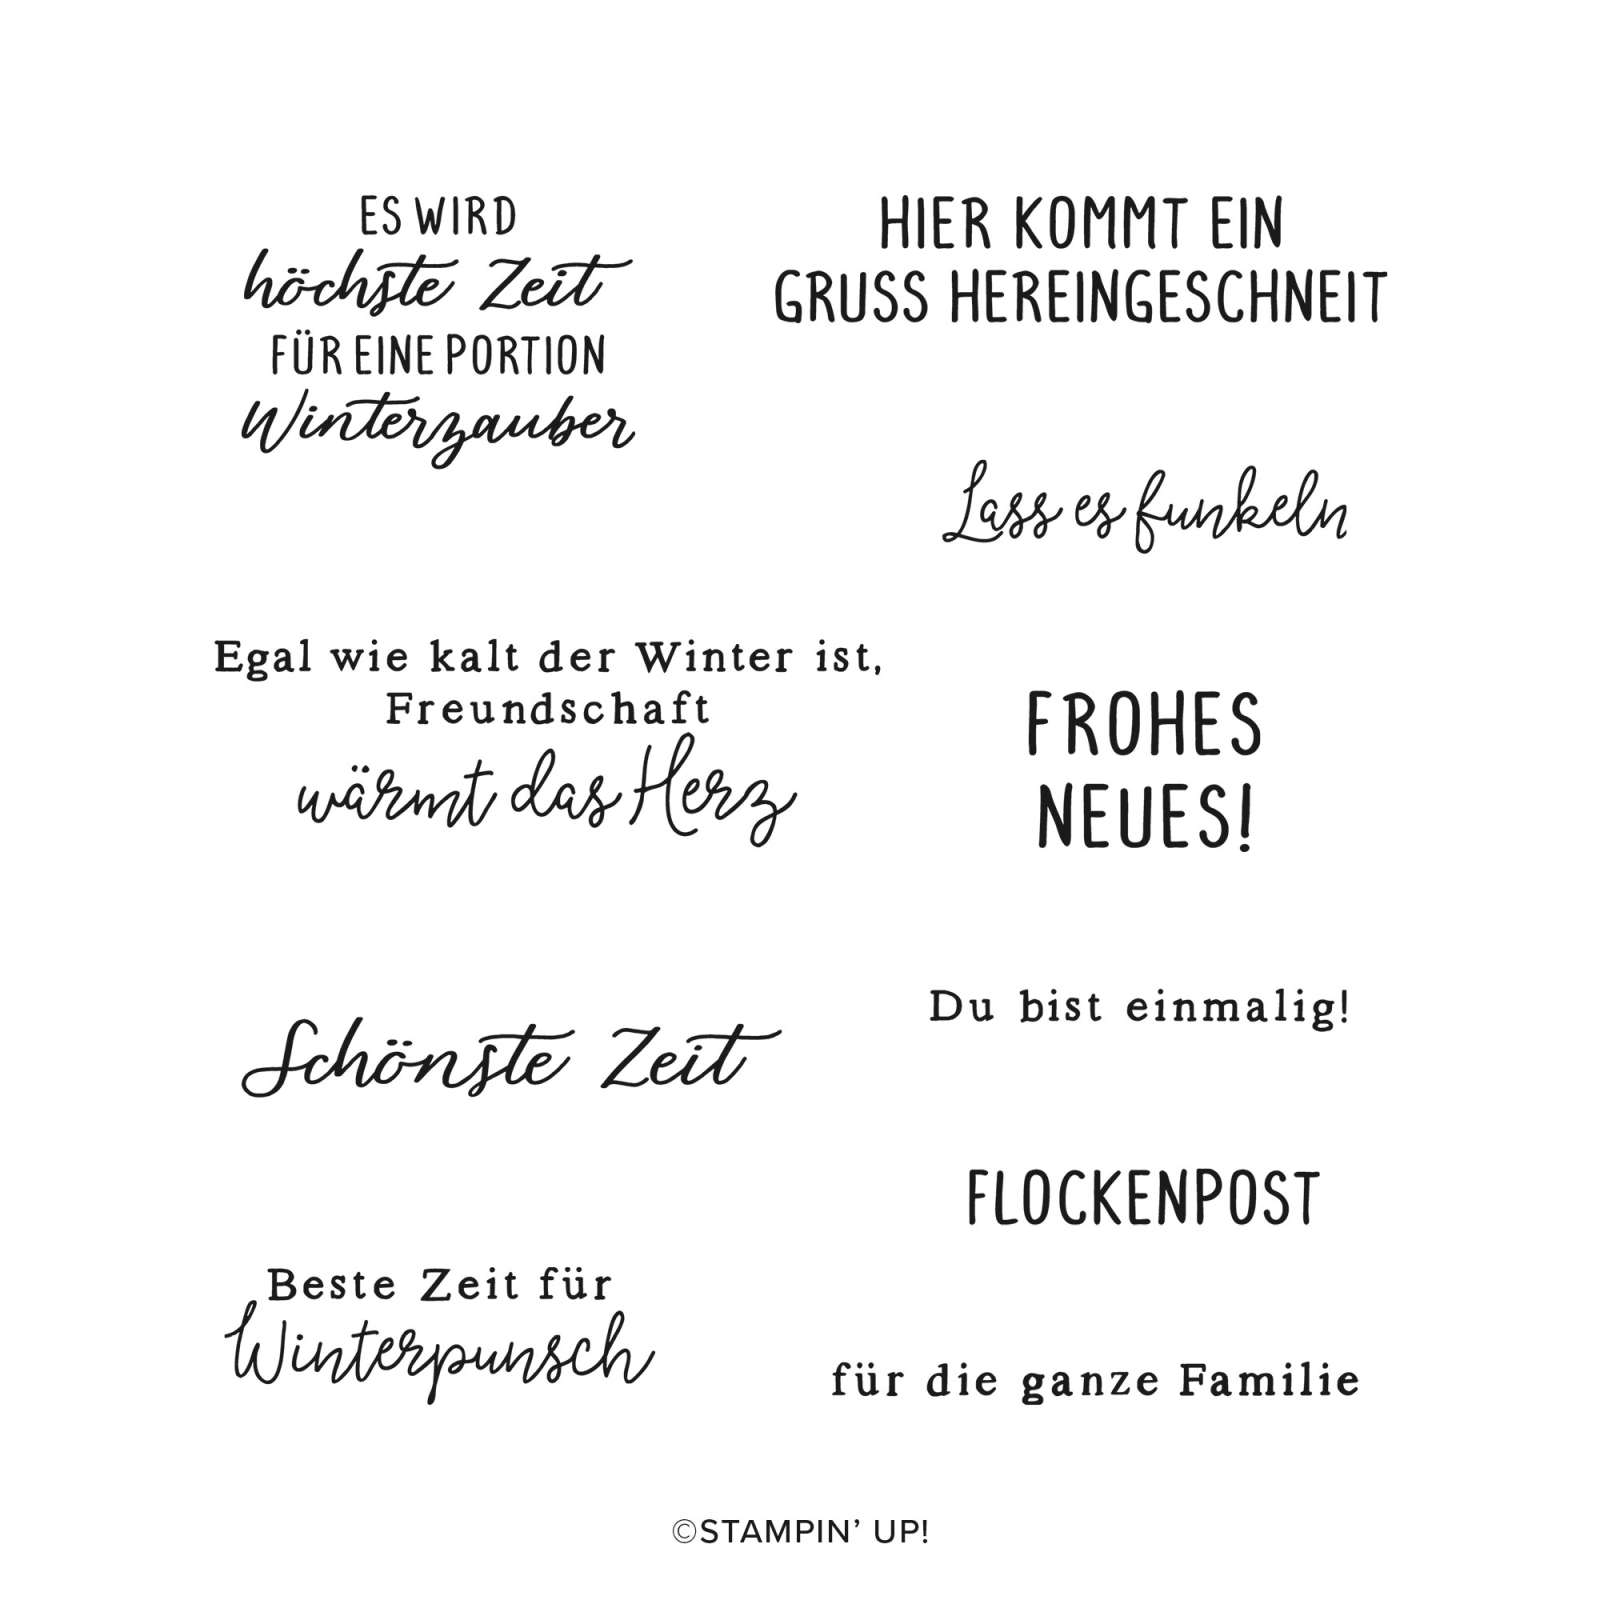 ES WIRD
höchste Zeit
FÜR EINE PORTION
Winterzauber
HIER KOMMT EIN
GRUSS HEREINGESCHNEIT
Lass es funkeln
Egal wie kalt der Winter ist,
Freundschaft
wärmt das Herz
FROHES
NEUES!
Du bist einmalig!
Schönste Zeit
FLOCKENPOST
Beste Zeit für
Winterpunsch
für die ganze Familie
©STAMPIN' UP!